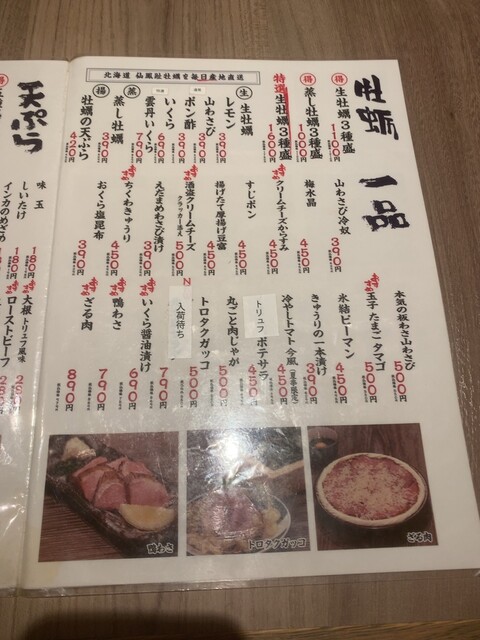 牡蛎 一品
北海道 仙鳳趾牡蠣を毎日産地直送
得 生牡蠣3種盛 1100円
得 蒸し牡蠣3種盛 1000円
特選生牡蠣3種盛 1600円
生 生牡蠣
レモン 390円
山わさび 390円
ポン酢 390円
いくら 690円
雲丹いくら 790円
蒸 蒸し牡蠣 390円
揚 牡蠣の天ぷら 420円
山わさび冷奴 390円
梅水晶 450円
クリームチーズからすみ 450円
すじポン 450円
揚げたて厚揚げ豆富 450円
酒盗クリームチーズ クラッカー添え 500円
えだまめわさび漬け 450円
ちくわきゅうり 450円
おくら塩昆布 390円
本気の板わさ山わさび 500円
玉子 たまごタマゴ 500円
氷結ピーマン 450円
きゅうりの一本漬け 390円
冷やしトマト 今風 450円
トリュフ ポテサラ 450円
丸ごと肉じゃが 500円
トロタクガッコ 500円
入荷待ち 790円
いくら醤油漬け 690円
鴨わさ 790円
ざる肉 890円
天ぷら
味玉 180円
しいたけ 180円
インカのめざめ
大根 トリュフ風味
ローストビーフ
鴨わさ
トロタクガッコ
ざる肉